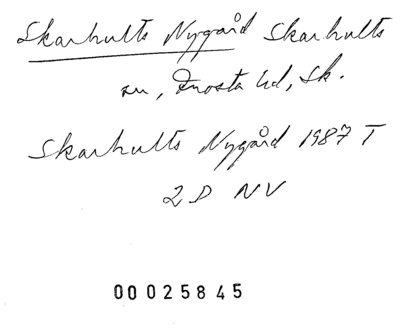 Skarhults Nygård Skarhults
sn, Frosta hd, Sk.
Skarhults Nygård 1987 T
2D NV
00025845